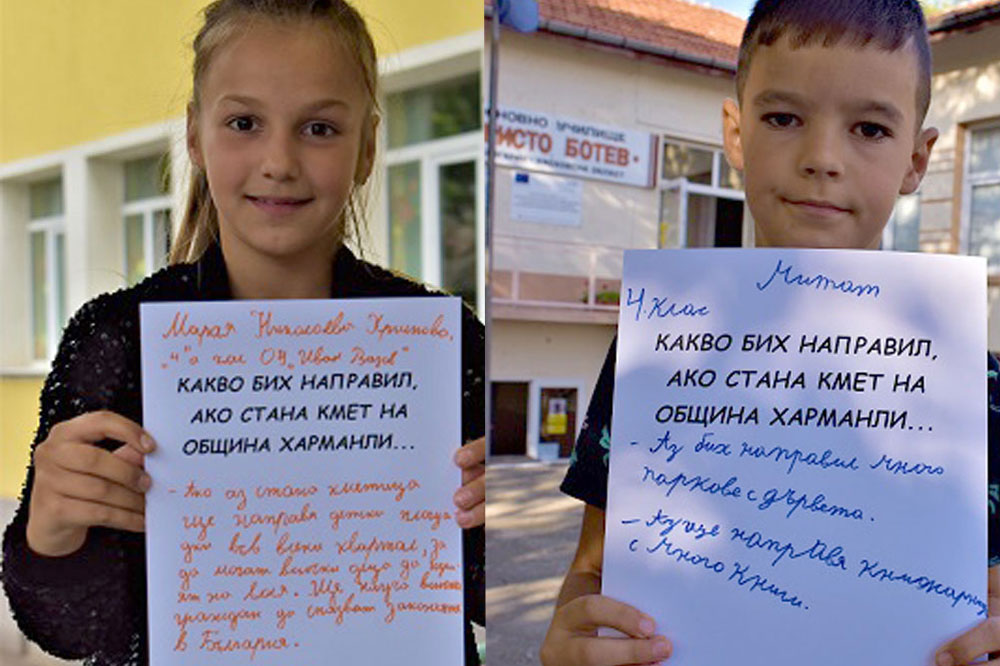 Мария Николаева Христова,
4"а клас ОУ „Иван Вазов"
КАКВО БИХ НАПРАВИЛ,
АКО СТАНА КМЕТ НА
ОБЩИНА ХАРМАНЛИ...
- Ако аз стана кметица
ще направя детски площа-
дки във всеки квартал, за
да могат всички деца да
на воля. Ще науча всички
граждани да спазват законите
в България.
НОВНО УЧИЛИЩЕ
РИСТО БОТЕВ"
Митат
4. клас
КАКВО БИХ НАПРАВИЛ,
АКО СТАНА КМЕТ НА
ОБЩИНА ХАРМАНЛИ...
- Аз бих направил много
паркове с дървета.
- Аз ще направя книжарница
с много книги.